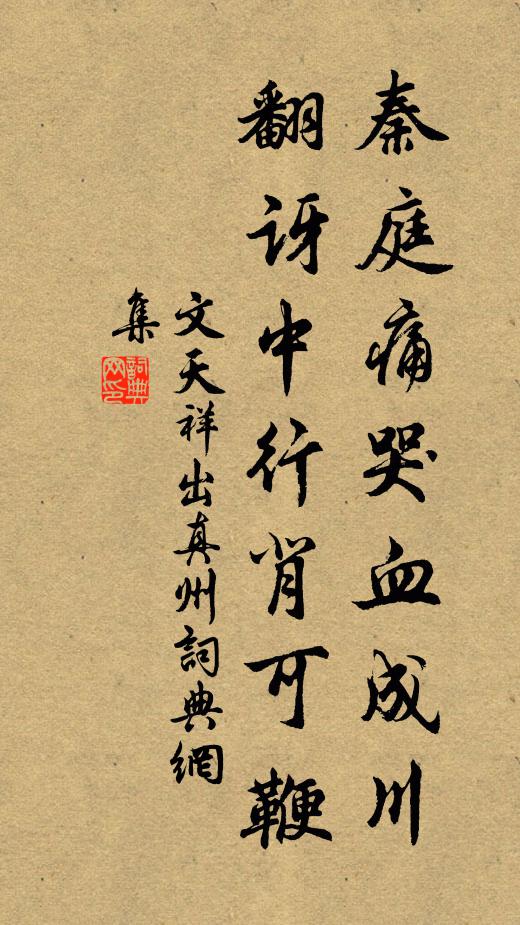 秦庭痛哭血成川
翻訝中行背可鞭
文天祥出真州詞典網
集
詞典
网印